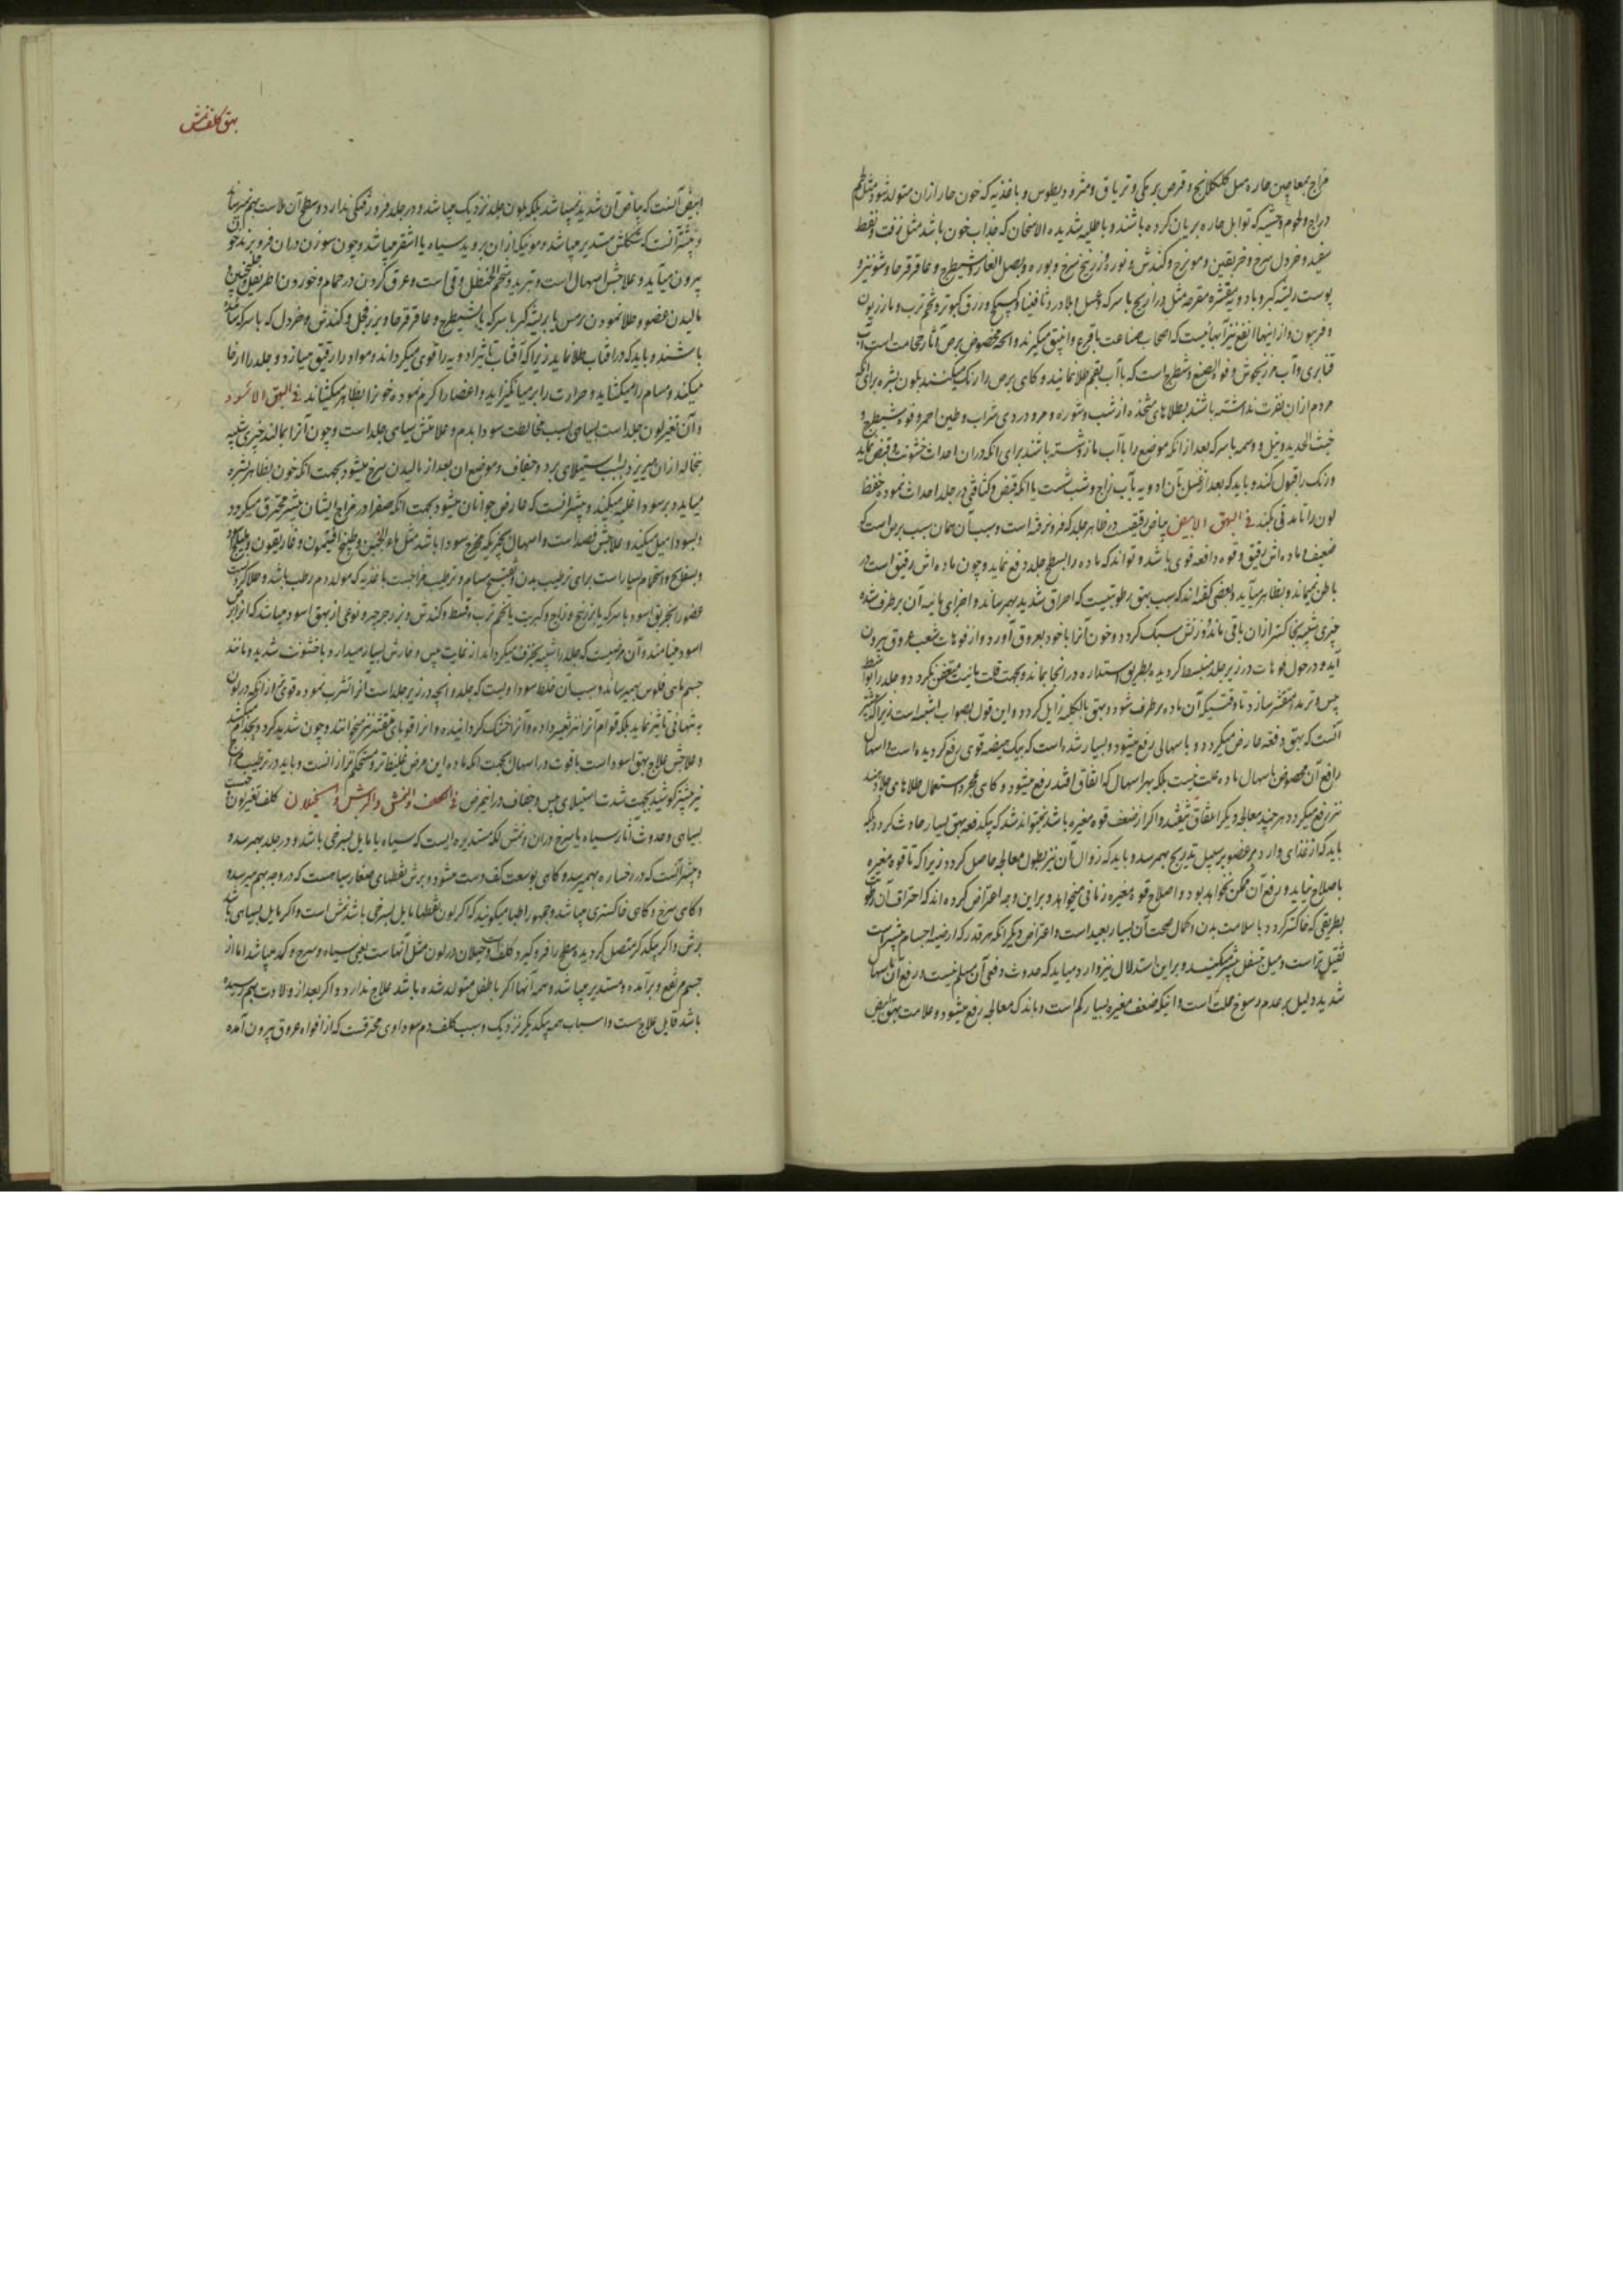 مزاج بمعاجین حاره مثل کلکلانج و قرص برمکی و تریاق و مثرودیطوس و باغذیه که خون حار ازان متولد شود مثل لحم
دراج و لحوم وحشیه که توابل حاره بریان کرده باشند و باطلیه شدیده الاسخان که جذاب خون باشد مثل زفت و نفط
سفید و خردل سرخ و خربقین و مویزج و کندش و نوره و زرنیخ سرخ و بوره و بصل الفار و شیطرج و عاقرقرحا و شونیز و
پوست ریشه کبر و بادویه مقشره مقرحه مثل ذراریح با سرکه و عسل بلادر و ثافسیا و کبیکج و زرق کبوتر و تخم ترب و مازریون
و فربیون و از اینها انفع نیز آبهاییست که اصحاب صناعت باقرع و انبیق میگیرند و آنچه مخصوص برص آثار حجامت است آب
قنابری و آب مرزنجوش و فوة الصبغ و شیطرج است که باآب بقم طلا نمایند و کاهی برص را رنک میکنند بلون بشره برای آنکه
مردم ازان نفرت نداشته باشند بطلاهای متخذه از شب و شوره و مرو و دردی شراب و طین احمر و فوه و شیطرج و
خبث الحدید و نیل و وسمه با سرکه بعد از انکه موضع را باآب مازو شسته باشند برای انکه دران احداث خشونت و قبض نماید
و رنک را قبول کند و باید که بعد از غسل بآن ادویه بآب زاج و شب شست یا انکه قبض و کثافتی در جلد احداث نموده حفظ
لون را تا مدتی بکند فی البهق الابیض بیاض رقیقیست در ظاهر جلد که فرو نرفته است و سبب آن همان سبب برص است که
ضعیف و ماده اش رقیق و قوه دافعه قوی باشد و تواند که ماده را بسطح جلد دفع نماید و چون ماده اش رقیق است در
باطن نمیماند و بظاهر میآید و بعضی گفته اند که سبب بهق رطوبتیست که احراق شدید بهمرساند و اجزای مائیه آن برطرف شده
چیزی شبیه بخاکستر ازان باقی ماند و وزنش سبک کردد و خون آنرا با خود بعروق آورد و از فوهات شعب عروق بیرون
آید و در حول فوهات در زیر جلد منبسط کردیده بطریق استداره در انجا بماند و بجهت قلت مائیت متعفن نکردد و جلد را بواسطه
یبس اتربه متقشر سازد تا وقتیکه آن ماده برطرف شود و بهق بالکلیه زایل کردد و این قول بصواب اشبه است زیرا که بیشتر
آنست که بهق دفعه عارض میکردد و باسهالی رفع میشود و بسیار شده است که بیک هیضه قوی رفع کردیده است و اسهال
رافع آن مخصوص باسهال ماده علت نیست بلکه بهر اسهال که اتفاق افتد رفع میشود و کاهی بمجرد استعمال طلاهای جلا دهنده
نیز رفع میکردد هر چند معالجه دیکر اتفاق نیفتد و اکر از ضعف قوه مغیره باشد نمیتواند شد که یکدفعه بهق بسیار حادث کردد بلکه
باید که از غذای وارد بر عضو بر سبیل تدریج بهمرسد و باید که زوال آن نیز بطول معالجه حاصل کردد زیرا که تا قوه مغیره
باصلاح نیاید و رفع آن ممکن نخواهد بود و اصلاح قوه مغیره زمانی میخواهد و براین وجه اعتراض کرده اند که احتراق آن رطوبت
بطریقی که خاکستر کردد با سلامت بدن و کمال صحت آن بسیار بعید است و اعتراض دیکر انکه هر قدر که ارضیه اجسام بیشتر است
ثقیل تر است و میل بسفل بیشتر میکند و براین استدلال نیز وارد میاید که حدوث دفعی آن مسلم نیست و رفع آن باسهال
شدید دلیل بر عدم رسوخ علت است و اینکه ضعف مغیره بسیار کم است و باندک معالجه رفع میشود و علامت بهق ابیض
بهق کلف نمش
ابیض آنست که بیاض آن شدید نمیباشد بلکه بلون جلد نزدیک میباشد و در جلد فرورفتکی ندارد و سطح آن ملاست بهم نمیرساند
و بیشتر آنست که شکلش مستدیر میباشد و موئیکه ازان بروید سیاه یا اشقر میباشد و چون سوزن دران فرو برند خون
بیرون میآید و علاجش اسهال است و تربد و شحم الحنظل و قی است و عرق کردن در حمام و خوردن اطریفل و کلنجبین و
مالیدن عضو و طلا نمودن ترمس یا بریشه کبر با سرکه یا شیطرج و عاقرقرحا و بزر فجل و کندش و خردل که با سرکه سائیده
باشند و باید که در آفتاب طلا نماید زیرا که آفتاب تاثیر ادویه را قوی میکرداند و مواد را رقیق میسازد و جلد را ارخا
میکند و مسام را میکشاید و حرارت را برمیانکیزاند و اعضا را کرم نموده خون را بظاهر میکشاند فی البهق الاسود
و آن تغیر لون جلد است بسیاهی بسبب مخالطت سودا بدم و علامتش سیاهی جلد است و چون آنرا بمالند چیزی شبیه
بنخاله ازان میریزد بسبب استیلای برد و جفاف و موضع ان بعد از مالیدن سرخ میشود بجهت انکه خون بظاهر بشره
میاید و بر سودا غلبه میکند و بیشتر آنست که عارض جوانان میشود بجهت انکه صفرا در مزاج ایشان بیشتر محترق میکردد
و بسودا میل میکند و علاجش فصد است و اسهال بچیزیکه مخرج سودا باشد مثل ماء الجبن و طبیخ افتیمون و غاریقون و هلیله
و بسفایج و استحمام بسیار است برای ترطیب بدن و تفتیح مسام و ترطیب مزاجست باغذیه که مولد دم رطب باشد و طلا کردنست
عضو را بخربق اسود با سرکه یا بزرنیخ و زاج و کبریت یا تخم ترب و قسط و کندش و بزر جرجیر و نوعی از بهق اسود میباشد که انرا برص
اسود مینامند و آن مرضیست که جلد را شبیه بخزف میکرداند از غایت یبس و خارش بسیار میدارد و با خشونت شدید و مانند
جسم ماهی فلوس بهم میرساند و سبب آن خلط سوداویست که جلد و انچه در زیر جلد است آنرا تشرب نموده قوی تر از انکه در لون
به تنهائی تاثیر نماید بلکه قوام آنرا نیز تغییر داده و آنرا خشک کردانیده و انرا قوبای متقشر نیز میخوانند و چون شدید کردد بجذام میکشد
و علاجش علاج بهق اسود است باقوت در اسهال بجهت انکه ماده این مرض غلیظ تر و مستحکم تر ازانست و باید در ترطیب مزاج
نیز بیشتر کوشید بجهت شدت استیلای یبس و جفاف در این مرض فی الکلف و النمش و البرش و الخیلان کلف تغیر لون است
بسیاهی و حدوث آثار سیاه یا سرخ دران و نمش لکه مستدیره ایست که سیاه یا مایل بسرخی باشد و در جلد بهمرسد و
و بیشتر آنست که در رخساره بهمیرسد و کاهی بوسعت کف دست میشود و برش نقطهای صغار سیاهست که در وجه بهم میرسد و
و کاهی سرخ و کاهی خاکستری میباشد و جمهور اطبا میکویند که اکر لون نقطها مایل بسرخی باشد نمش است و اکر مایل بسیاهی باشد
برش و اکر بیکدیکر متصل کردیده سطح را فرو کیرد کلف است و خیلان در لون مثل آنها است یعنی سیاه و سرخ و کمد میباشد اما از
جسم مرتفع و برآمده و مستدیر میباشد و همه آنها اکر با طفل متولد شده باشد علاج ندارد و اکر بعد از ولادت بهم رسیده
باشد قابل علاج است و اسباب همه بیکدیکر نزدیک و سبب کلف دم سوداوی محترقست که از افواه عروق بیرون آمده